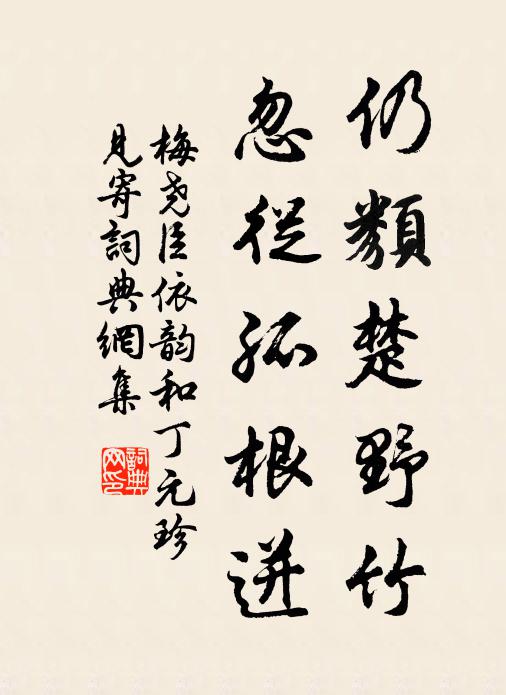 仍類楚野竹
忽從孤根迸
梅堯臣依韵和丁元珍
見寄詞典網集
詞典网印